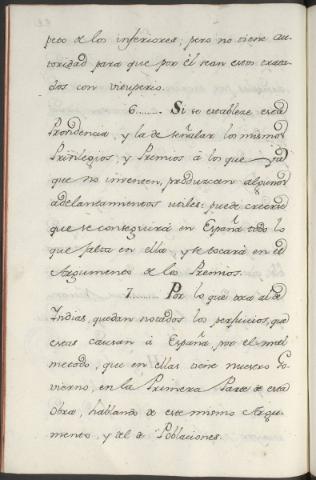 peto de los inferiores; pero no tiene au-
toridad para que por él sean estos trata-
dos con vituperio.
6........ Si se establece esta
Providencia, y la de señalar los mismos
Privilegios, y Premios à los que ya
que no inventen, produzcan algunos
adelantamientos utiles: puede creerse
que se conseguirá en España todo lo
que falta en ella, y se tocará en el
Argumento de los Premios.
7........ Por lo que toca al de
Indias, quedan notados los perjuicios, que
estas causan à España, por el mal
metodo, que en ellas tiene nuestro Go-
vierno, en la Primera Parte de esta
Obra, hablando de este mismo Argu-
mento, y del de Poblaciones.